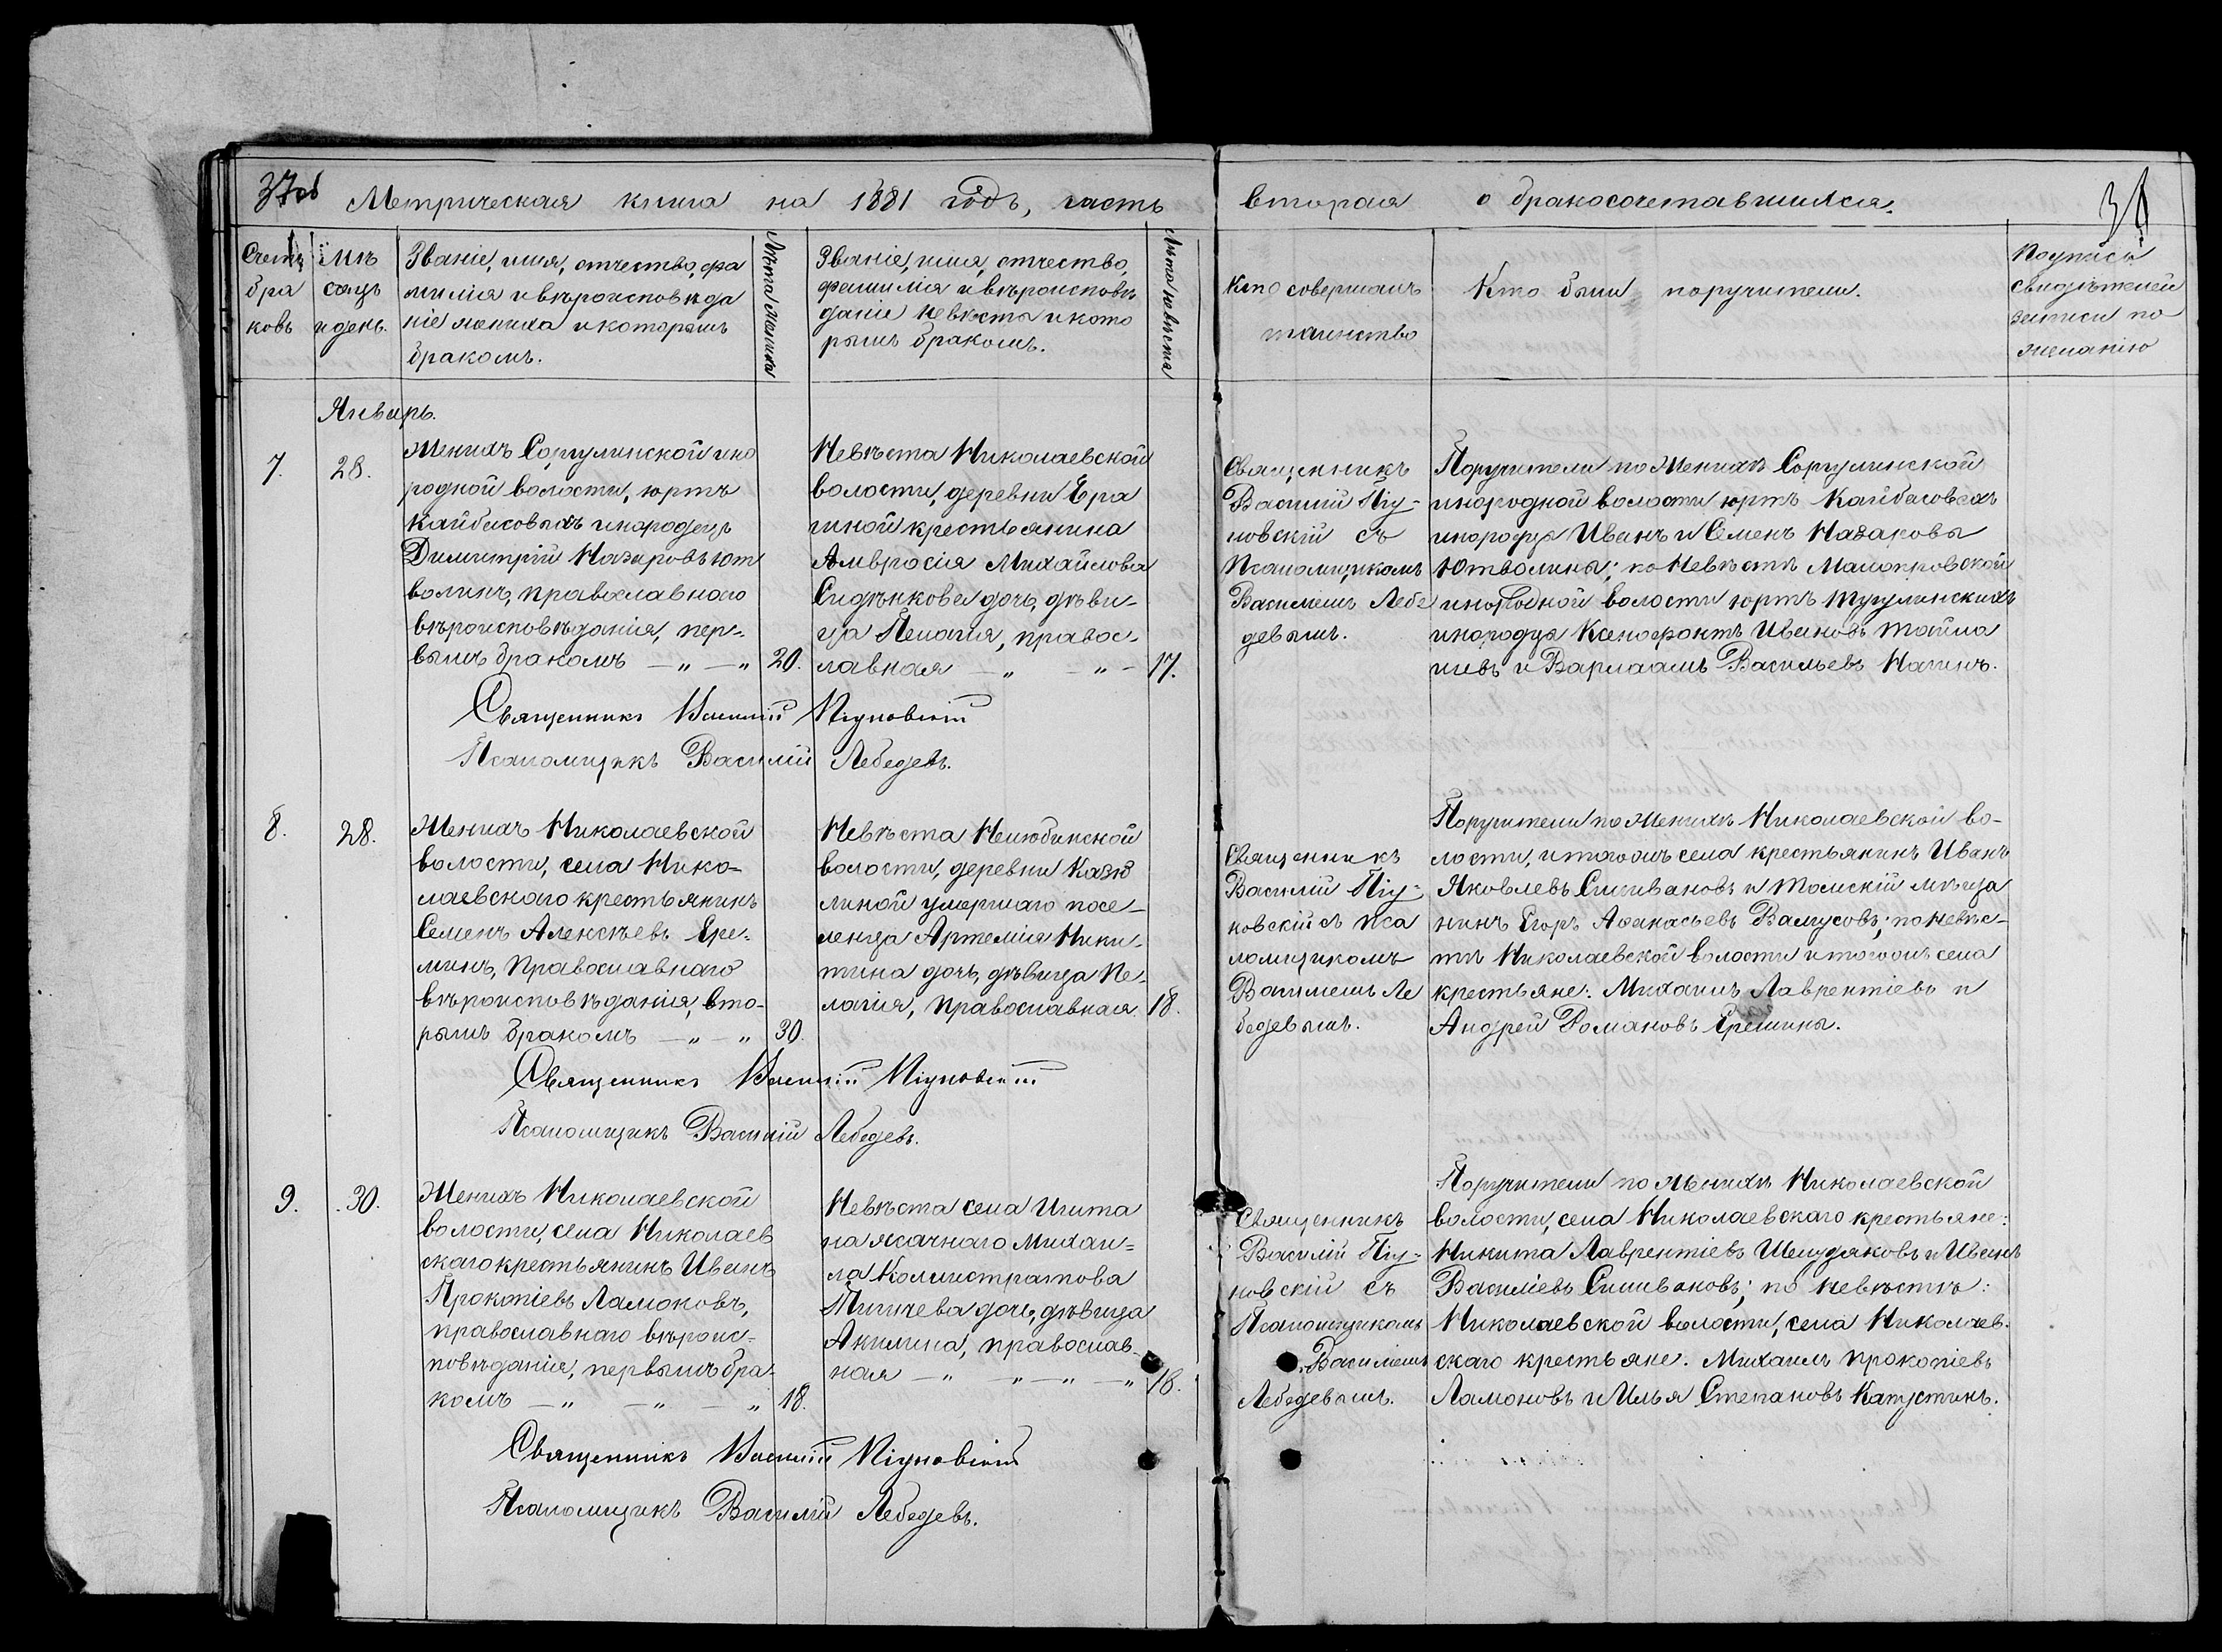 37об Метрическая книга на 1881 годъ, часть
вторая о бракосочетавшихся.
38
Счетъ
бра
ковъ
Мѣ
сяцъ
и день.
Званіе, имя, отчество, фа
милія и вѣроисповѣда
ніе жениха и которымъ
бракомъ.
Лѣта жениха
Званіе, имя, отчество,
фамилія и вѣроисповѣ
даніе невѣсты и кото
рымъ бракомъ.
Лѣта невѣста
Кто совершалъ
таинство
Кто были поручители.
Подписи
свидѣтелей
записи по
желанію
Январь.
7.
28.
Женихъ Соргулинской ино
родной волости, юртъ
Кайбасовыхъ инородецъ
Димитрій Назаровъ Ют
волинъ, православнаго
вѣроисповѣданія, пер-
вымъ бракомъ — „ — „
20.
Невѣста Николаевской
волости, деревни Ера
гиной крестьянина
Амвросія Михайлова
Сидѣнкова дочь, дѣви-
ца Пелагія, правос-
лавная — „ — „ —
17.
Священникъ
Василій Піу-
новскій съ
Псаломщикомъ
Василіемъ Лебе
девымъ.
Поручители по Женихѣ Соргулинской
инородной волости юртъ Кайбасовыхъ
инородцы Иванъ и Семенъ Назаровы
Ютволины; по Невѣстѣ Малокровской
инородной волости юртъ Тугулинскихъ
инородцы Ксенофонтъ Ивановъ Тайла
шевъ и Варлаамъ Васильевъ Нагинъ.
Священникъ Василій Піуновскій
Псаломщикъ Василій Лебедевъ.
8.
28.
Женихъ Николаевской
волости, села Нико-
лаевскаго крестьянинъ
Семенъ Алексѣевъ Ере-
минъ, Православнаго
вѣроисповѣданія, вто-
рымъ бракомъ — „ — „
30.
Невѣста Нелюбинской
волости, деревни Казю
линой умершаго посе-
ленца Артемія Ники-
тина дочь, дѣвица Пе-
лагія, Православная
18.
Священникъ
Василій Піу-
новскій съ Пса
ломщикомъ
Василіемъ Ле
бедевымъ.
Поручители по Женихѣ Николаевской во-
лости, и тогожъ села крестьянинъ Иванъ
Яковлевъ Силивановъ и Томскій мѣща
нинъ Егоръ Аѳанасьевъ Валусовъ; по Невѣс-
тѣ Николаевской волости и тогожъ села
крестьяне: Михаилъ Лаврентіевъ и
Андрей Романовъ Еремины.
Священникъ Василій Піуновскій
Псаломщикъ Василій Лебедевъ.
9.
30.
Женихъ Николаевской
волости, села Николаев
скаго крестьянинъ Иванъ
Прокопіевъ Ламоновъ,
православнаго вѣроис-
повѣданія, первымъ бра-
комъ — „ — „ — „
18.
Невѣста села Игита
на ясачнаго Михаи-
ла Колистратова
Тигичева дочь, дѣвица
Акилина, православ-
ная — „ — „ — „ — „
18.
Священникъ
Василій Піу-
новскій съ
Псаломщикомъ
Василіемъ
Лебедевымъ.
Поручители по Женихѣ Николаевской
волости, села Николаевскаго крестьяне:
Никита Лаврентіевъ Шелудяковъ и Иванъ
Василіевъ Силивановъ; по невѣстѣ:
Николаевской волости, села Николаев-
скаго крестьяне: Михаилъ Прокопіевъ
Ламоновъ и Илья Степановъ Капустинъ.
Священникъ Василій Піуновскій
Псаломщикъ Василій Лебедевъ.